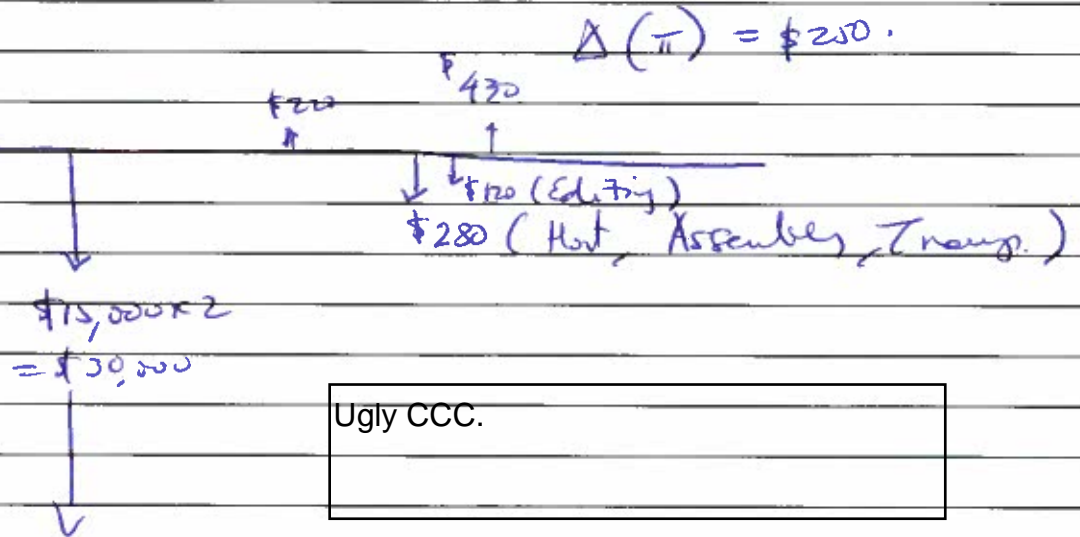 Δ(π) = $250.
$430
$220
$120 (Editing)
$280 (Host, Assembly, Transp.)
$15,000 x 2
= $30,000
Ugly CCC.